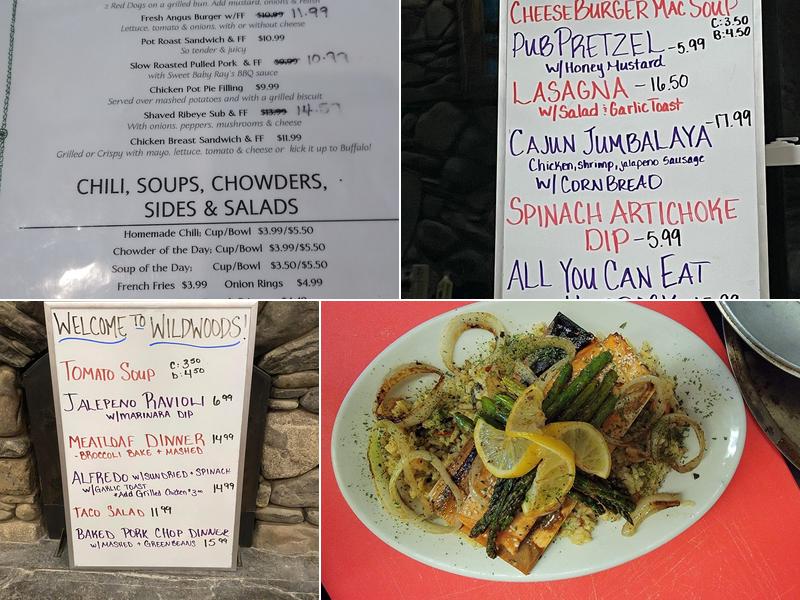 2 Red Dogs on a grilled bun. Add mustard, onions & relish
Fresh Angus Burger w/FF $10.99 11.99
Lettuce, tomato & onions, with or without cheese
Pot Roast Sandwich & FF $10.99
So tender & juicy
Slow Roasted Pulled Pork & FF $9.99 10.99
with Sweet Baby Ray's BBQ sauce
Chicken Pot Pie Filling $9.99
Served over mashed potatoes and with a grilled biscuit
Shaved Ribeye Sub & FF $13.99 14.59
With onions, peppers, mushrooms & cheese
Chicken Breast Sandwich & FF $11.99
Grilled or Crispy with mayo, lettuce, tomato & cheese or kick it up to Buffalo!
CHILI, SOUPS, CHOWDERS,
SIDES & SALADS
Homemade Chili; Cup/Bowl $3.99/$5.50
Chowder of the Day; Cup/Bowl $3.99/$5.50
Soup of the Day: Cup/Bowl $3.50/$5.50
French Fries $3.99 Onion Rings $4.99
CHEESEBURGER MAC SOUP
C: 3.50
B: 4.50
PUB PRETZEL -5.99
W/ Honey Mustard
LASAGNA -16.50
W/ Salad & Garlic Toast
CAJUN JUMBALAYA -17.99
Chicken, shrimp, jalapeno sausage
W/ CORNBREAD
SPINACH ARTICHOKE
DIP -5.99
ALL YOU CAN EAT
WELCOME TO WILDWOODS!
TOMATO SOUP C: 3.50
B: 4.50
JALEPENO RAVIOLI 6.99
W/MARINARA DIP
MEATLOAF DINNER 14.99
-BROCCOLI BAKE + MASHED
ALFREDO W/SUNDRIED + SPINACH
W/GARLIC TOAST 14.99
*Add Grilled Chicken $3.00
TACO SALAD 11.99
BAKED PORK CHOP DINNER
W/MASHED + GREENBEANS 15.99